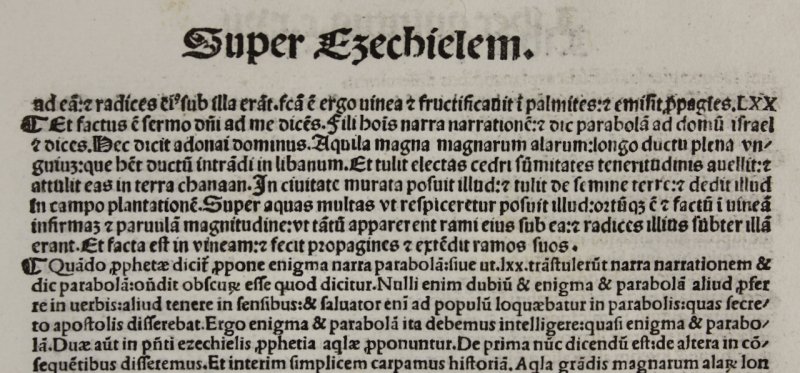 Super Ezechielem.
ad eā:⁊ radices ei⁹ sub illa erāt.fcā ē ergo uinea ⁊ fructificauit ī palmites:⁊ emisit ꝓpagīes.LXX
¶Et factus ē sermo dn̄i ad me dicēs.Fili hoīs narra narrationē:⁊ dic parabolā ad domū israel
⁊ dices.Hec dicit adonai dominus.Aquila magna magnarum alarum:longo ductu plena vn/
guiuꝫ:que hēt ductū intrādi in libanum.Et tulit electas cedri sūmitates teneritudinis auellit:⁊
attulit eas in terra chanaan.In ciuitate murata posuit illud:⁊ tulit de semine terre:⁊ dedit illud
in campo plantationē.Super aquas multas vt respiceretur posuit illud:oꝛtūqꝫ ē ⁊ factū ī uineā
infirmaꝫ ⁊ paruulā magnitudine:vt tātū apparerent rami eius sub ea:⁊ radices illius sūbter illā
erant.Et facta est in vineam:⁊ fecit pꝛopagines ⁊ extēdit ramos suos.
¶Quādo ꝓphetæ dicit̄ ꝓpone enigma narra parabolā:siue ut.lxx.trāstulerūt narra narrationem &
dic parabolā:on̄dit obscuꝝ esse quod dicitur.Nulli enim dubiū & enigma & parabolā aliud ꝓfer
re in uerbis:aliud tenere in sensibus:& saluator enī ad populū loquæbatur in parabolis:quas secre/
to apostolis differebat.Ergo enigma & parabolā ita debemus intelligere:quasi enigma & parabo/
lā.Duæ aūt in pn̄ti ezechielis ꝓphetia aqlæ ꝓponuntur.De prima nūc dicendū est:de altera in cō/
sequētibus differemus.Et interim simplicem carpamus historiā.Aqla grādis magnarum alaꝝ lon